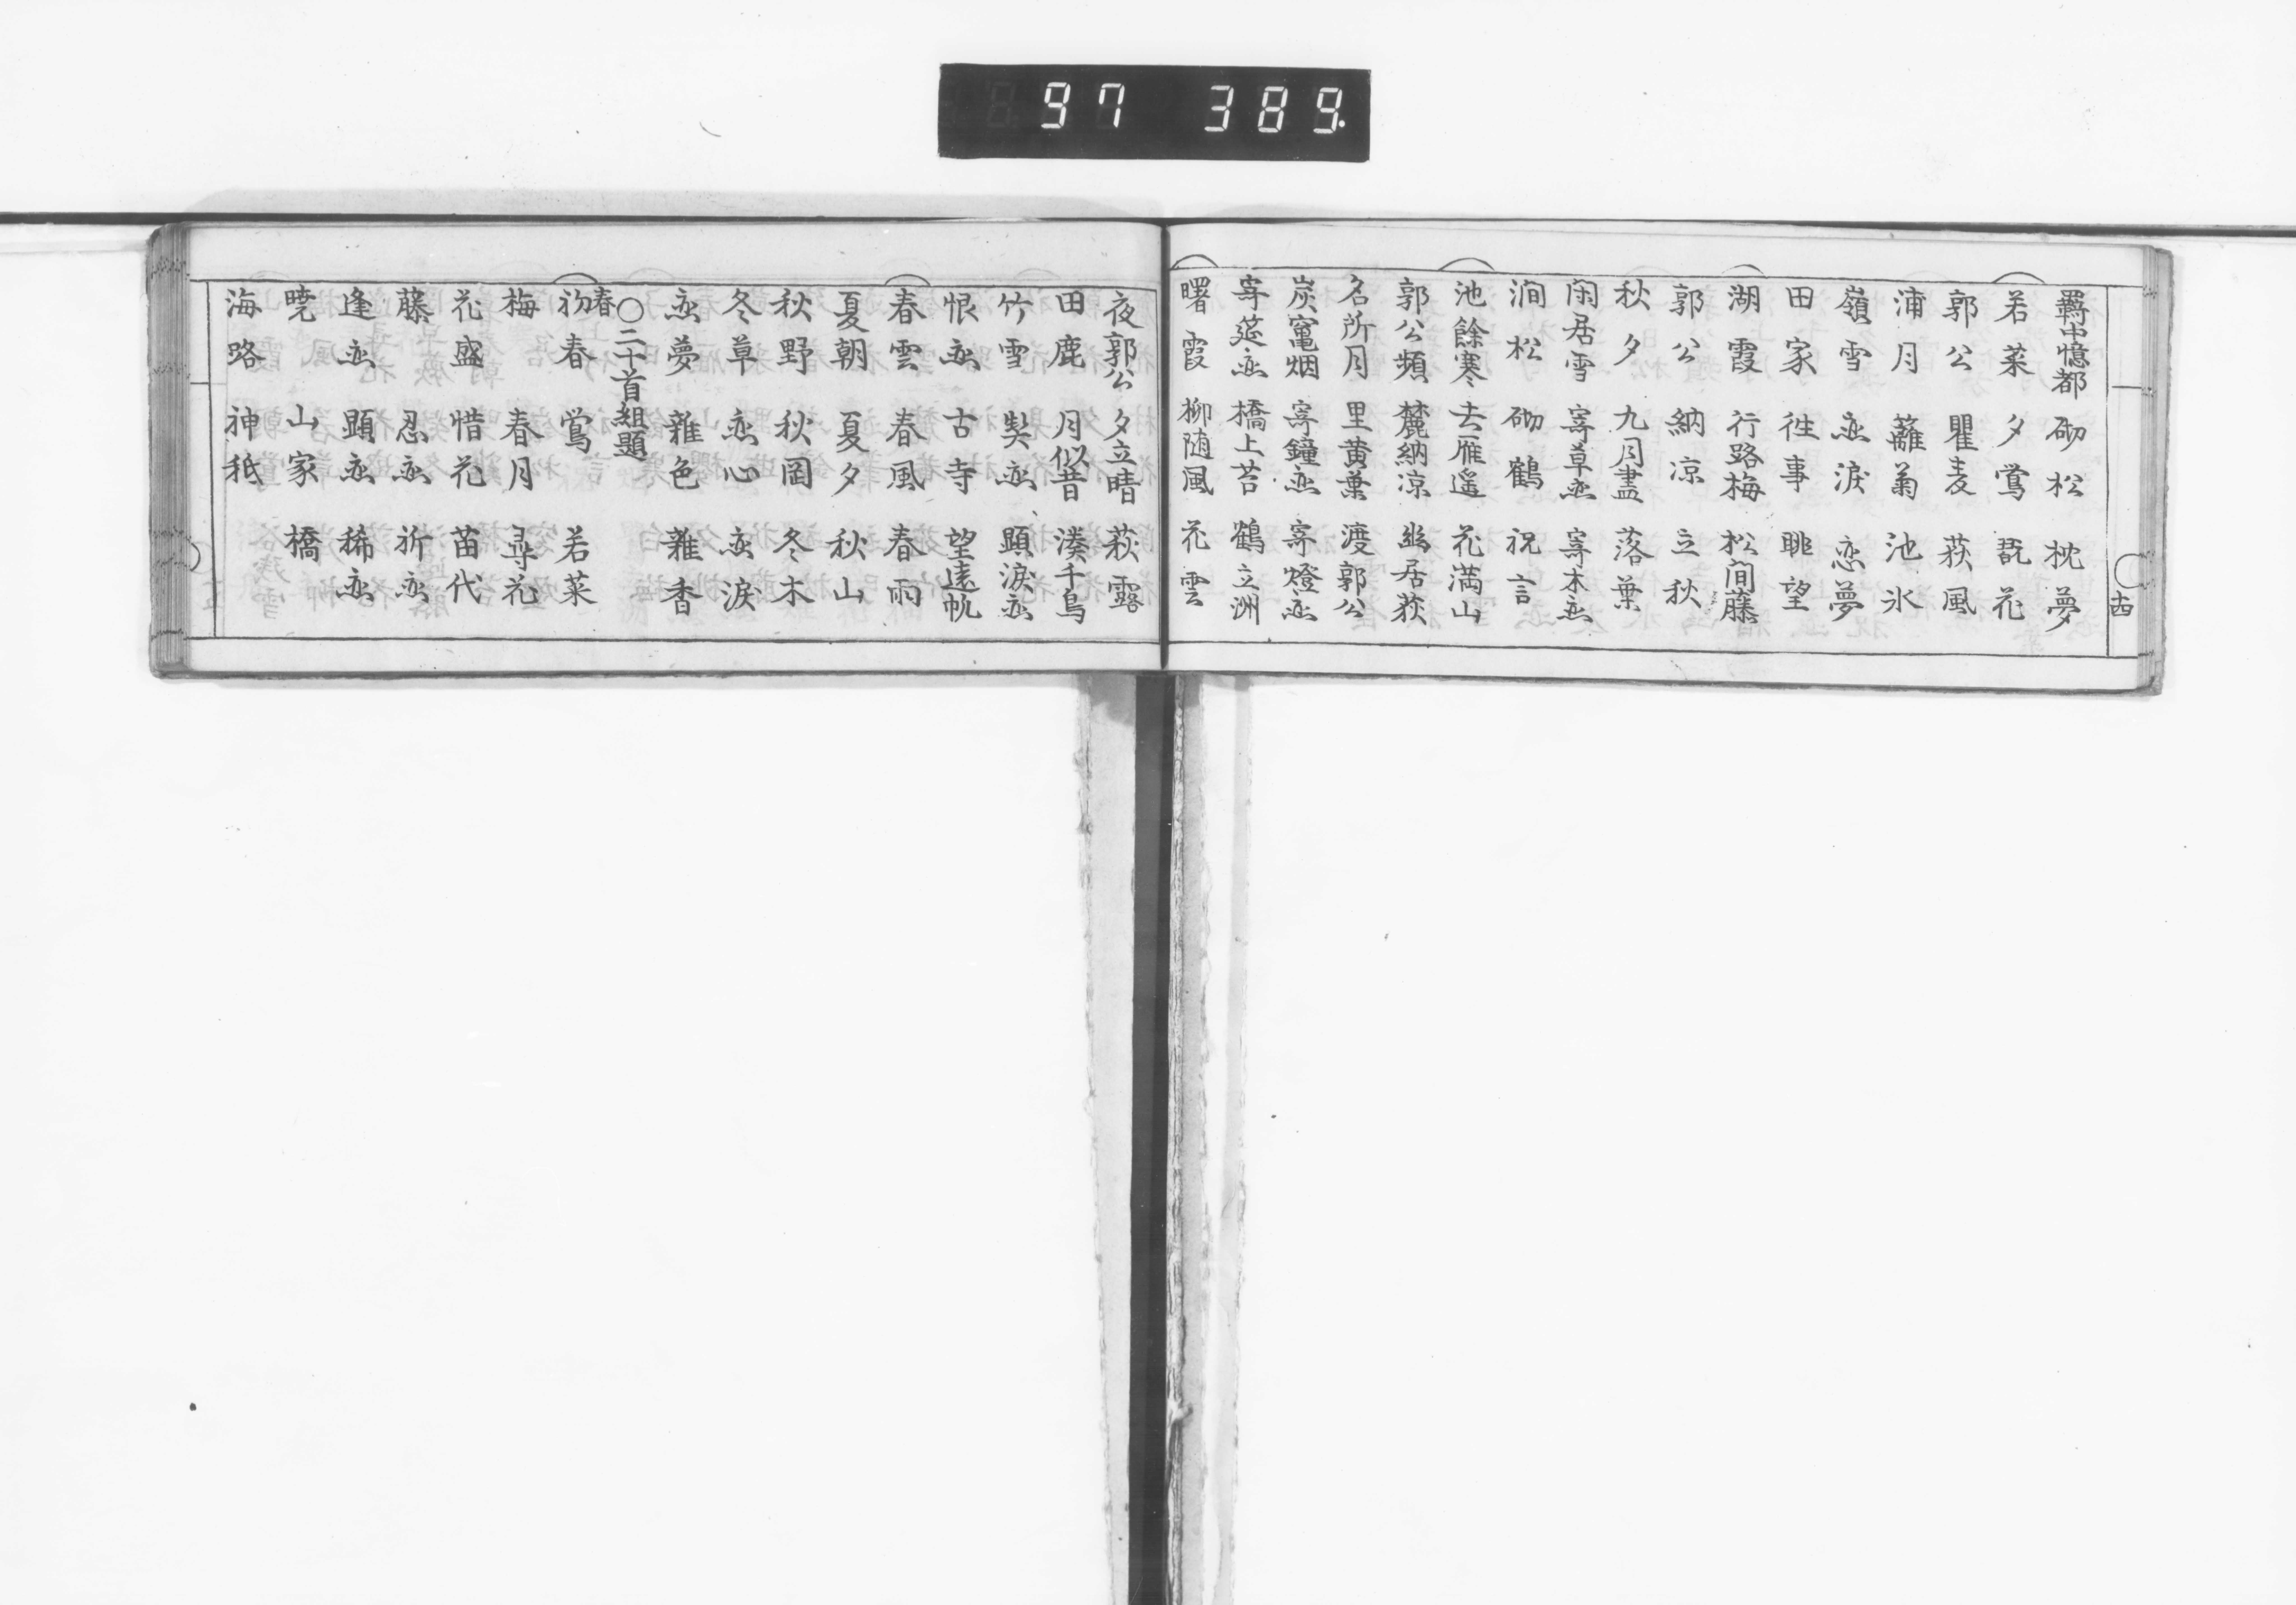 97 389
羇中憶都 砌松 枕夢
若菜 夕鴬 翫花
郭公 瞿麦 荻風
浦月 籬菊 池氷
嶺雪 恋涙 恋夢
田家 徃事 眺望
湖霞 行路梅 松間藤
郭公 納凉 立秋
秋夕 九月盡 落葉
閑居雪 寄草恋 寄木恋
澗松 砌鶴 祝言
池餘寒 去雁遥 花満山
郭公頻 麓納凉 幽居荻
名所月 里黄葉 渡郭公
炭竃烟 寄鐘恋 寄燈恋
寄莚恋 橋上苔 鶴立洲
曙霞 柳随風 花雲
十四
夜郭公 夕立晴 萩露
田鹿 月似昔 湊千鳥
竹雪 契恋 顕涙恋
恨恋 古寺 望遠帆
春雲 春風 春雨
夏朝 夏夕 秋山
秋野 秋岡 冬木
冬草 恋心 恋涙
恋夢 雜色 雜香
〇二十首組題
春
初春 鴬 若菜
梅 春月 尋花
花盛 惜花 苗代
藤 忍恋 祈恋
逢恋 顕恋 稀恋
暁 山家 橋
海路 神祇